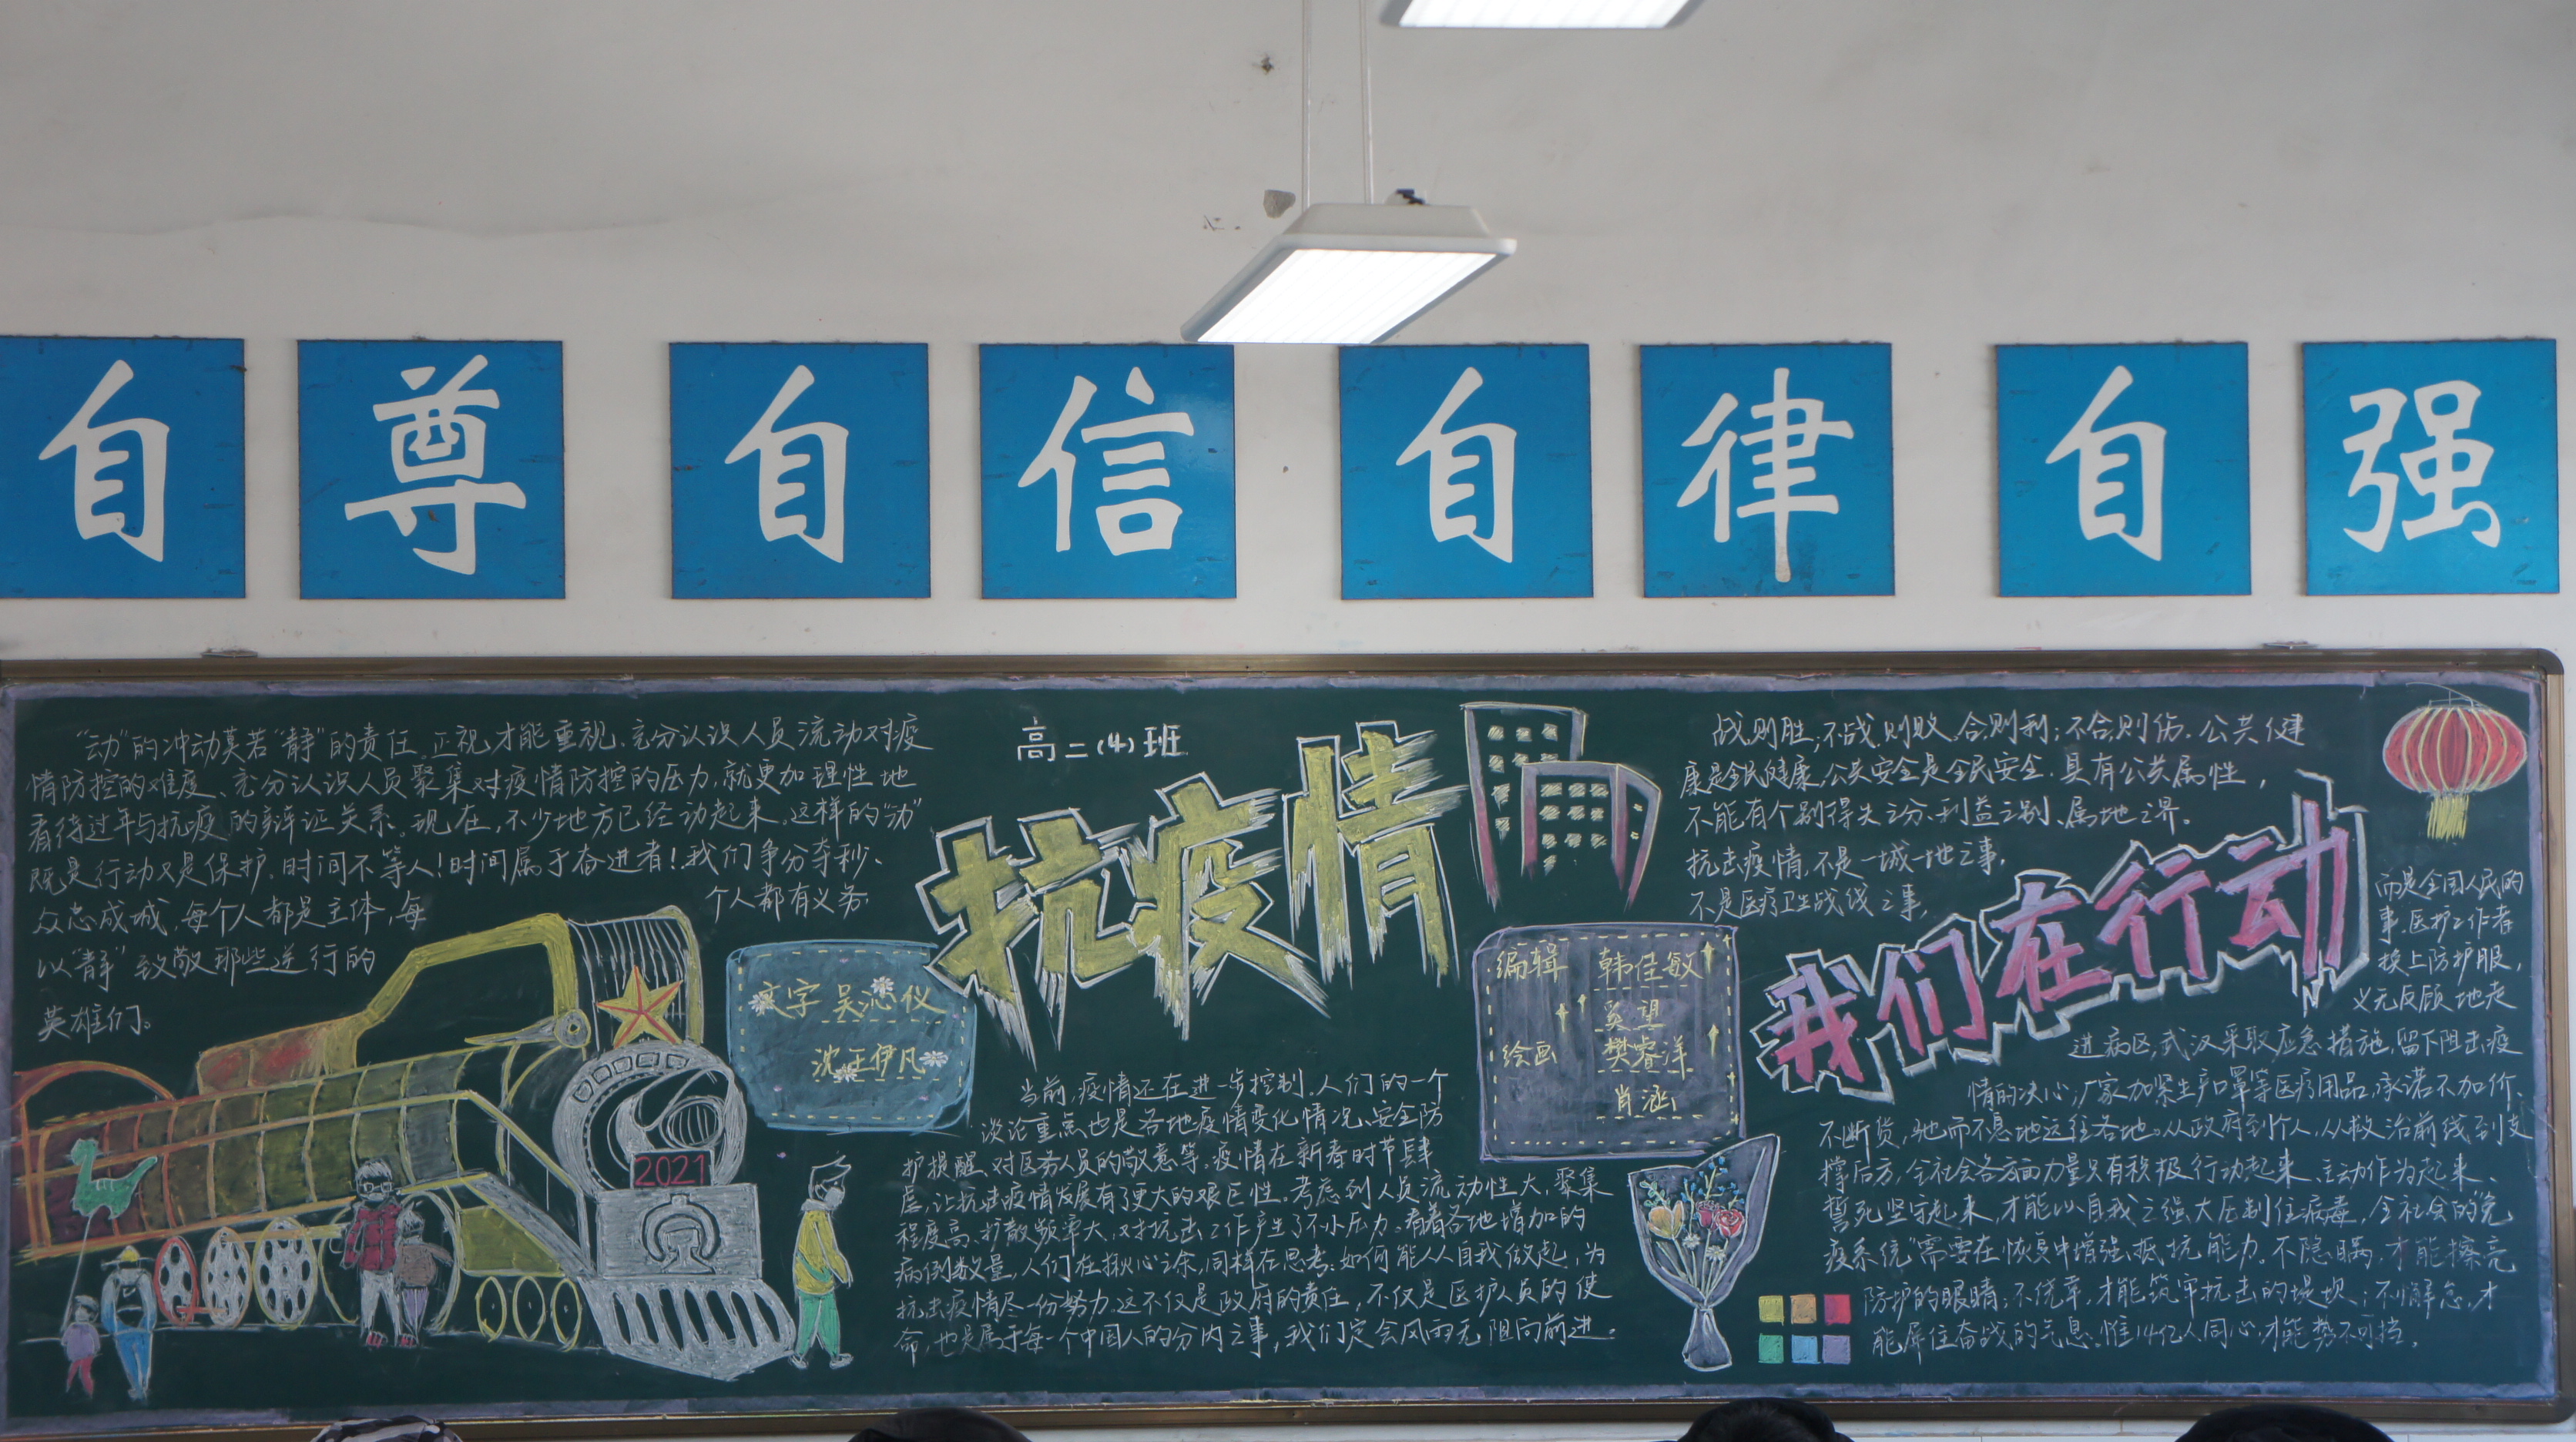 自尊 自信 自律 自强
“动”的冲动莫若“静”的责任。正视才能重视、充分认识人员流动对疫
情防控的难度、充分认识人员聚集对疫情防控的压力,就更加理性地
看待过年与抗疫的辩证关系。现在,不少地方已经动起来。这样的“动”
既是行动又是保护。时间不等人!时间属于奋进者!我们争分夺秒、
众志成城,每个人都是主体,每
个人都有义务,
以“静”致敬那些逆行的
英雄们。
高二(4)班
抗疫情
文字 吴沁仪
沈王伊凡
当前,疫情还在进一步控制。人们的一个
谈论重点也是各地疫情变化情况、安全防
护提醒、对医务人员的敬意等。疫情在新春时节肆
虐,让抗击疫情发展有了更大的艰巨性。考虑到人员流动性大,聚集
程度高、扩散频率大,对抗击工作产生了不小压力。看着各地增加的
病例数量,人们在揪心之余,同样在思考:如何能从自我做起,为
抗击疫情尽一份努力。这不仅是政府的责任,不仅是医护人员的使
命,也是属于每一个中国人的分内之事,我们定会风雨无阻向前进。
编辑 韩佳敏
奚望
绘画 樊睿洋
肖涵
我们在行动
战则胜,不战则败,合则利;不合则伤。公共健
康是全民健康,公共安全是全民安全。具有公共属性,
不能有个别得失之分、利益之别、属地之界。
抗击疫情,不是一城一地之事,
不是医疗卫生战线之事,
而是全国人民的
事。医护工作者
换上防护服,
义无反顾地走
进病区,武汉采取应急措施,留下阻击疫
情的决心,厂家加紧生产口罩等医疗用品,承诺不加价、
不断货,驰而不息地运往各地。从政府到个人,从救治前线到支
撑后方,全社会各方面力量只有积极行动起来、主动作为起来、
誓死坚守起来,才能以自我之强大压制住病毒。全社会的“免
疫系统”需要在恢复中增强抵抗能力。不隐瞒,才能擦亮
防护的眼睛;不侥幸,才能筑牢抗击的堤坝;不懈怠,才
能屏住奋战的气息。惟14亿人同心,才能势不可挡。
2021